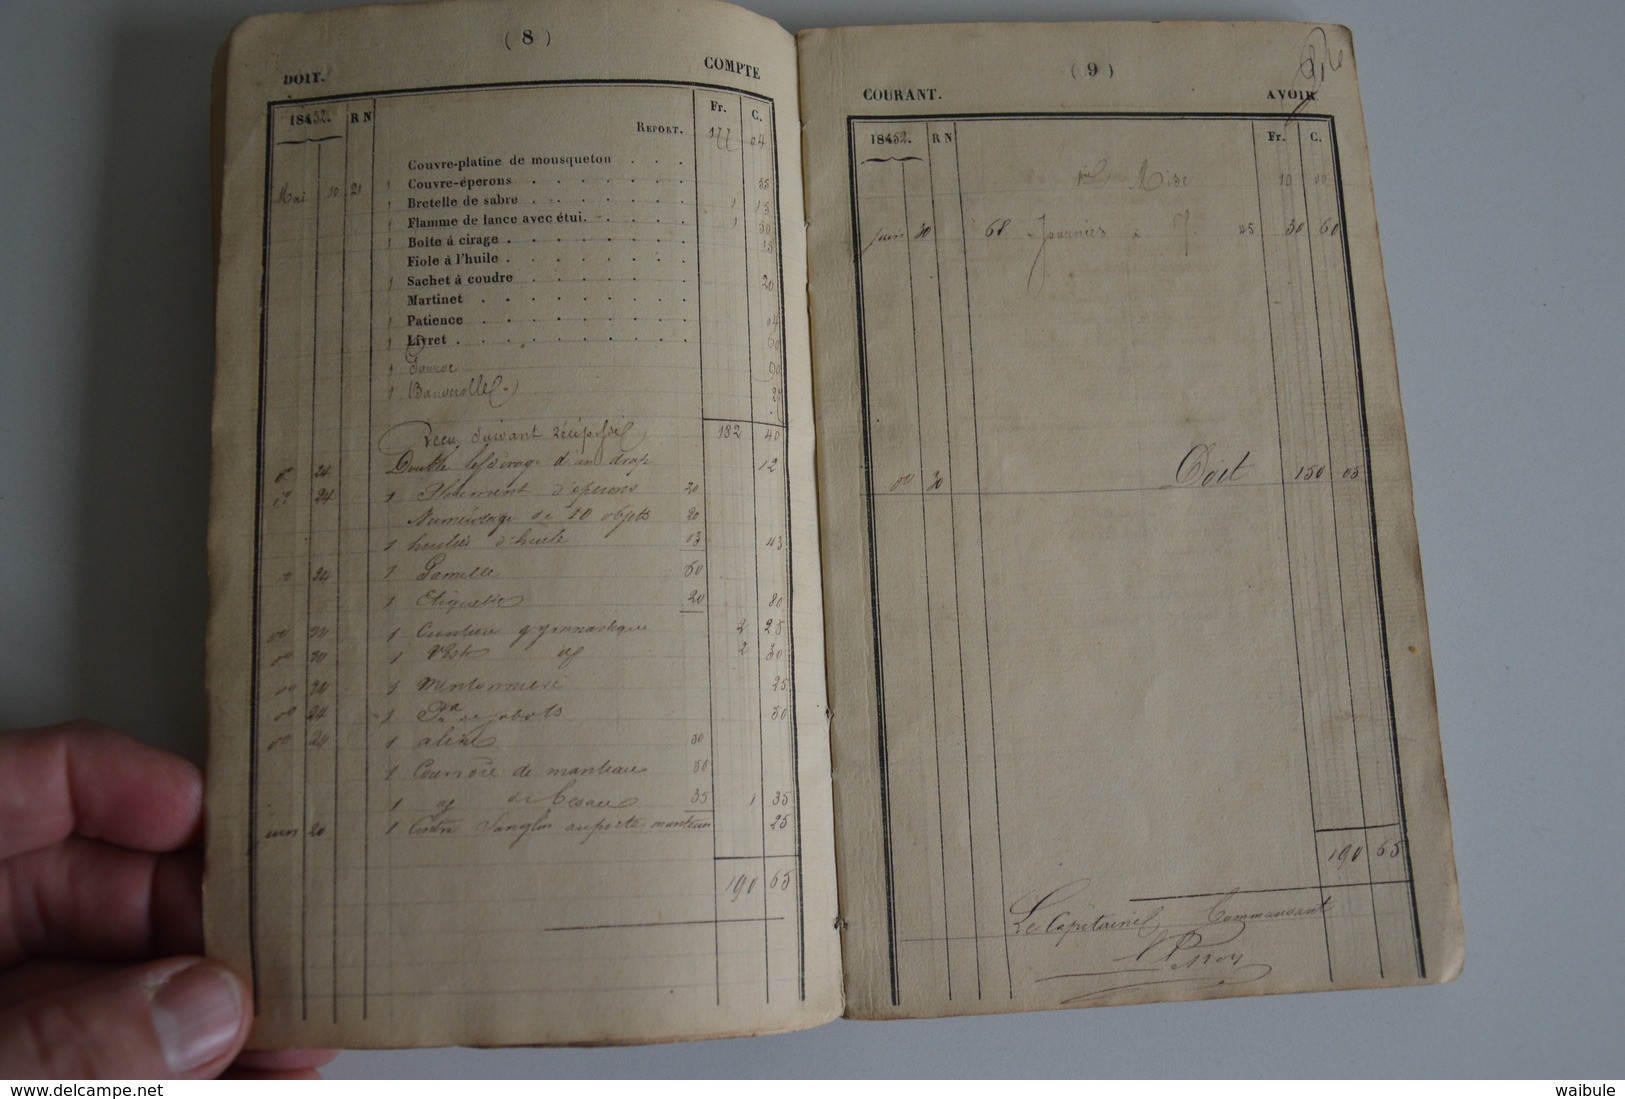 ( 8 )
DOIT. COMPTE
1852. R N Fr. C.
REPORT. 177 04
Couvre-platine de mousqueton . . .
Mai 10 21 1 Couvre-éperons . . . . . . . 55
1 Bretelle de sabre . . . . . . . 1 15
1 Flamme de lance avec étui. . . . . 1 50
1 Boîte à cirage . . . . . . . . 15
Fiole à l'huile . . . . . . . .
1 Sachet à coudre . . . . . . . 20
Martinet . . . . . . . . .
1 Patience . . . . . . . . . 04
1 Livret . . . . . . . . . . 60
1
1 Banderolle
Reçu suivant récépissé 182 40
24 Double d'un drap 12
24 1 Placement d'éperons 20
Numérotage de 10 objets 20
1 d'huile 03 43
24 1 Gamelle 60
1 Etiquette 20 80
1 Ceinture gymnastique 2 25
1 Veste 2 30
1 Mentonnière 25
24 1 Pre de sabots 50
24 1 alène 50
1 Courroie de manteau 50
1 de 35 1 35
juin 20 1 Contre Sanglon au porte manteau 25
190 65
( 9 )
COURANT. AVOIR
1852. R N Fr. C.
1re Mise 10 00
juin 30 68 Journées à 45 30 60
Doit 150 05
190 65
Le Capitaine Commandant
waibule